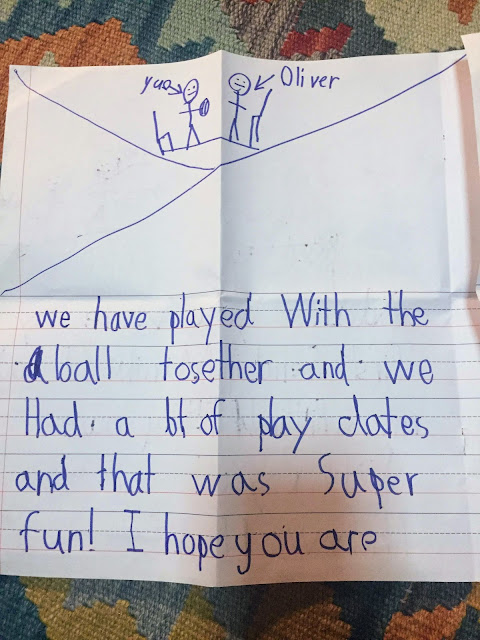 yuo Oliver
we have played With the
ball tosether and we
Had a lot of play dates
and that was Super
fun! I hope you are